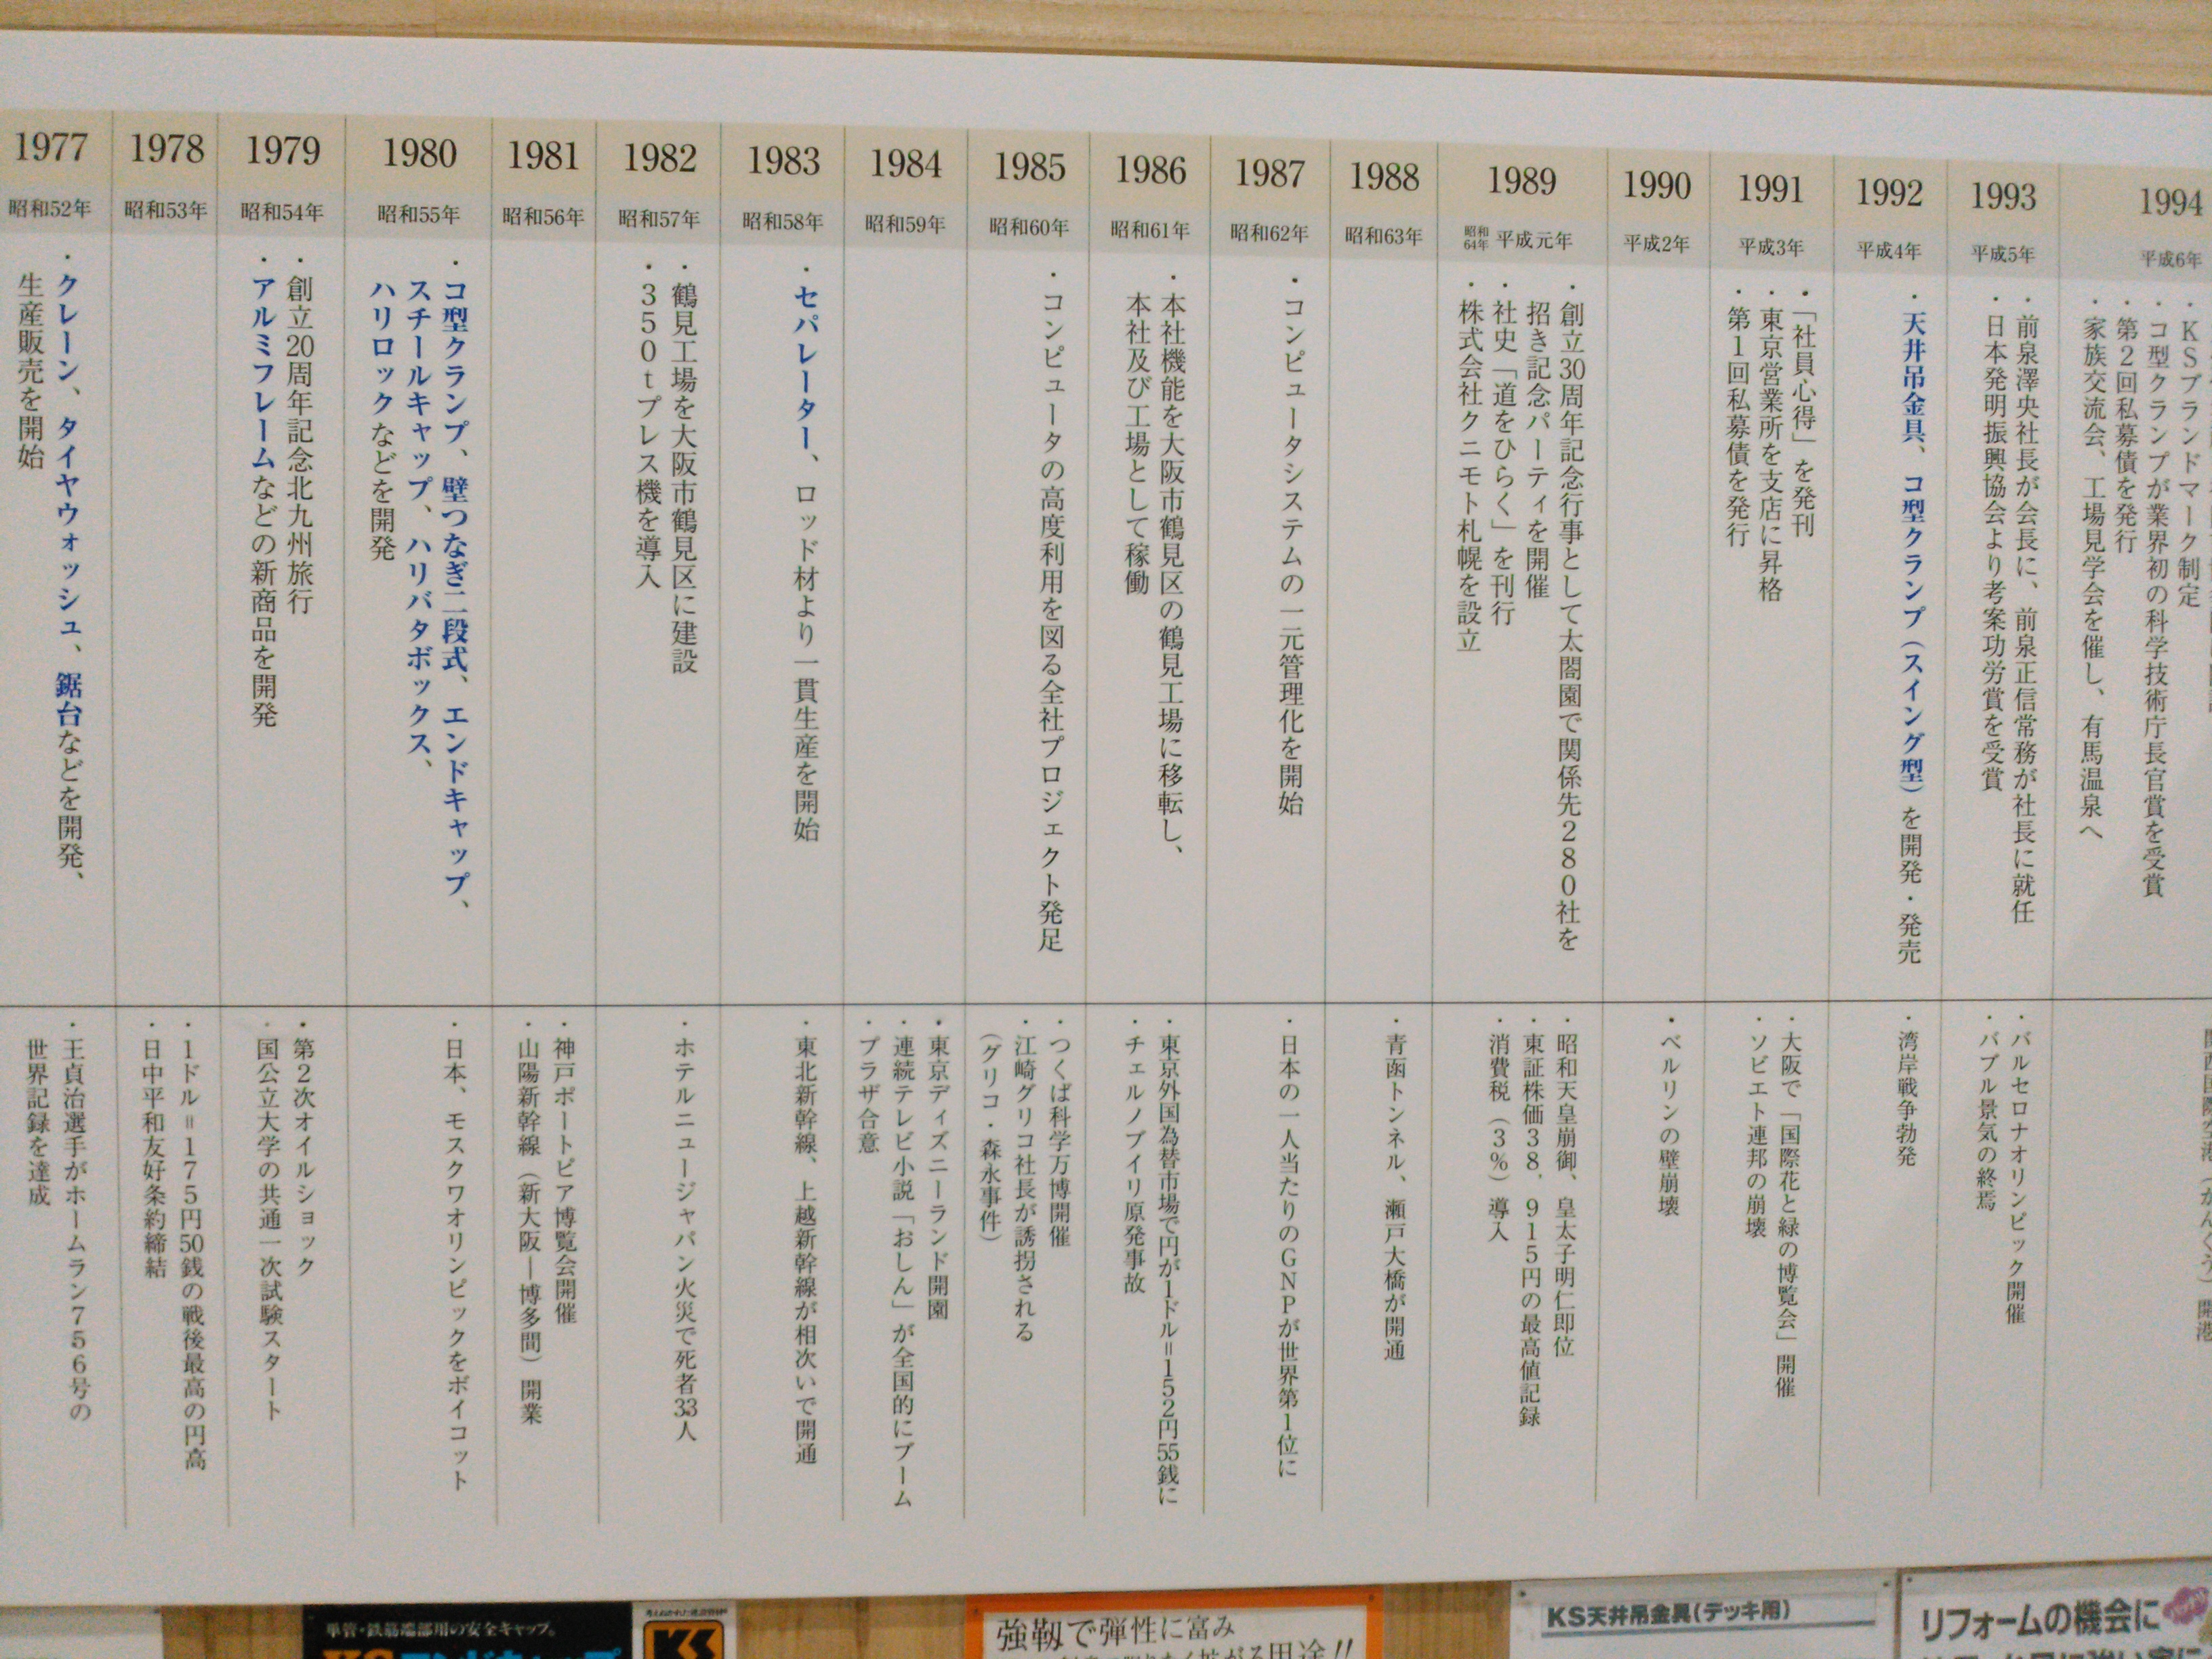 1977
昭和52年
・クレーン、タイヤウォッシュ、鋸台などを開発、
生産販売を開始
・王貞治選手がホームラン756号の
世界記録を達成
1978
昭和53年
・1ドル=175円50銭の戦後最高の円高
・日中平和友好条約締結
1979
昭和54年
・創立20周年記念北九州旅行
・アルミフレームなどの新商品を開発
・第2次オイルショック
・国公立大学の共通一次試験スタート
1980
昭和55年
・コ型クランプ、壁つなぎ二段式、エンドキャップ、
スチールキャップ、ハリバタボックス、
ハリロックなどを開発
・日本、モスクワオリンピックをボイコット
1981
昭和56年
・神戸ポートピア博覧会開催
・山陽新幹線（新大阪―博多間）開業
1982
昭和57年
・鶴見工場を大阪市鶴見区に建設
・350tプレス機を導入
・ホテルニュージャパン火災で死者33人
1983
昭和58年
・セパレーター、ロッド材より一貫生産を開始
・東北新幹線、上越新幹線が相次いで開通
1984
昭和59年
・東京ディズニーランド開園
・連続テレビ小説「おしん」が全国的にブーム
・プラザ合意
1985
昭和60年
・コンピュータの高度利用を図る全社プロジェクト発足
・つくば科学万博開催
・江崎グリコ社長が誘拐される
（グリコ・森永事件）
1986
昭和61年
・本社機能を大阪市鶴見区の鶴見工場に移転し、
本社及び工場として稼働
・東京外国為替市場で円が1ドル=152円55銭に
・チェルノブイリ原発事故
1987
昭和62年
・コンピュータシステムの一元管理化を開始
・日本の一人当たりのGNPが世界第1位に
1988
昭和63年
・青函トンネル、瀬戸大橋が開通
1989
昭和64年 平成元年
・創立30周年記念行事として太閤園で関係先280社を
招き記念パーティを開催
・社史「道をひらく」を刊行
・株式会社クニモト札幌を設立
・昭和天皇崩御、皇太子明仁即位
・東証株価38．915円の最高値記録
・消費税（3％）導入
1990
平成2年
・ベルリンの壁崩壊
1991
平成3年
・「社員心得」を発刊
・東京営業所を支店に昇格
・第1回私募債を発行
・大阪で「国際花と緑の博覧会」開催
・ソビエト連邦の崩壊
1992
平成4年
・天井吊金具、コ型クランプ（スイング型）を開発・発売
・湾岸戦争勃発
1993
平成5年
・前泉澤央社長が会長に、前泉正信常務が社長に就任
・日本発明振興協会より考案功労賞を受賞
・バルセロナオリンピック開催
・バブル景気の終焉
1994
平成6年
・KSブランドマーク制定
・コ型クランプが業界初の科学技術庁長官賞を受賞
・第2回私募債を発行
・家族交流会、工場見学会を催し、有馬温泉へ
単管・鉄筋端部用の安全キャップ。
KS
強靱で弾性に富み
KS天井吊金具（デッキ用）
リフォームの機会に